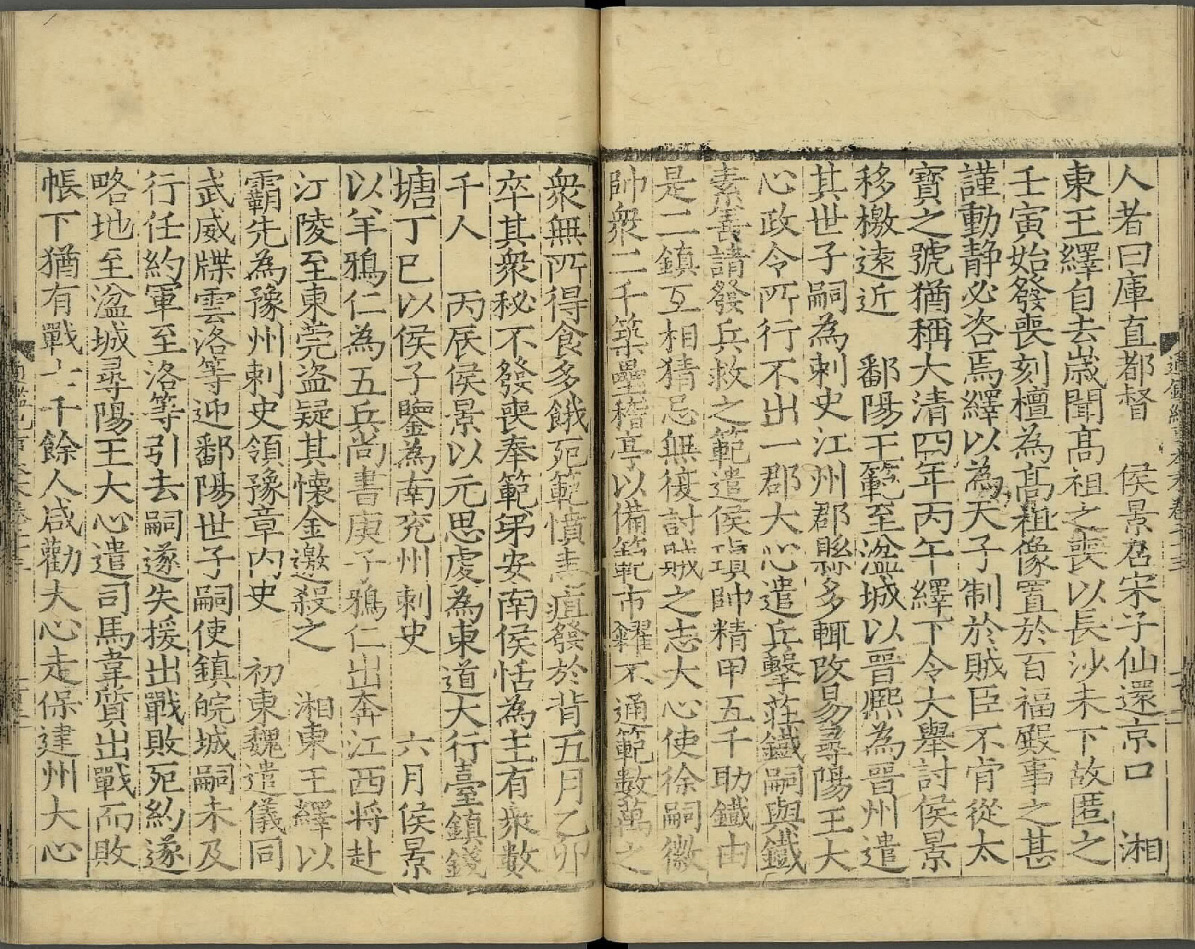 人者曰庫直都督　侯景召宋子仙還京口　湘
東王繹自去歲聞高祖之喪以長沙未下故匿之
壬寅始發喪刻檀為高祖像置於百福殿事之甚
謹動静必咨焉繹以為天子制於賊臣不肯從太
寶之號猶稱大清四年丙午繹下令大舉討侯景
移檄遠近　鄱陽王範至湓城以晉熙為晉州遣
其世子嗣為刺史江州郡縣多輒改易尋陽王大
心政令所行不出一郡大心遣兵擊莊鐵嗣與鐵
素善請發兵救之範遣侯瑱帥精甲五千助鐵由
是二鎮互相猜忌無復討賊之志大心使徐嗣徽
帥衆二千築壘稽亭以備範市糴不通範數萬之
衆無所得食多餓死範憤恚疽發於背五月乙卯
卒其衆秘不發喪奉範弟安南侯恬為主有衆數
千人　丙辰侯景以元思虔為東道大行臺鎮錢
塘丁巳以侯子鑒為南兖州刺史　六月侯景
以羊鴉仁為五兵尚書庚子鴉仁出奔江西將赴
江陵至東莞盜疑其懷金邀殺之　湘東王繹以
霸先為豫州刺史領豫章内史　初東魏遣儀同
武威牒雲洛等迎鄱陽世子嗣使鎮皖城嗣未及
行任約軍至洛等引去嗣遂失援出戰敗死約遂
略地至湓城尋陽王大心遣司馬韋質出戰而敗
帳下猶有戰士千餘人咸勸大心走保建州大心